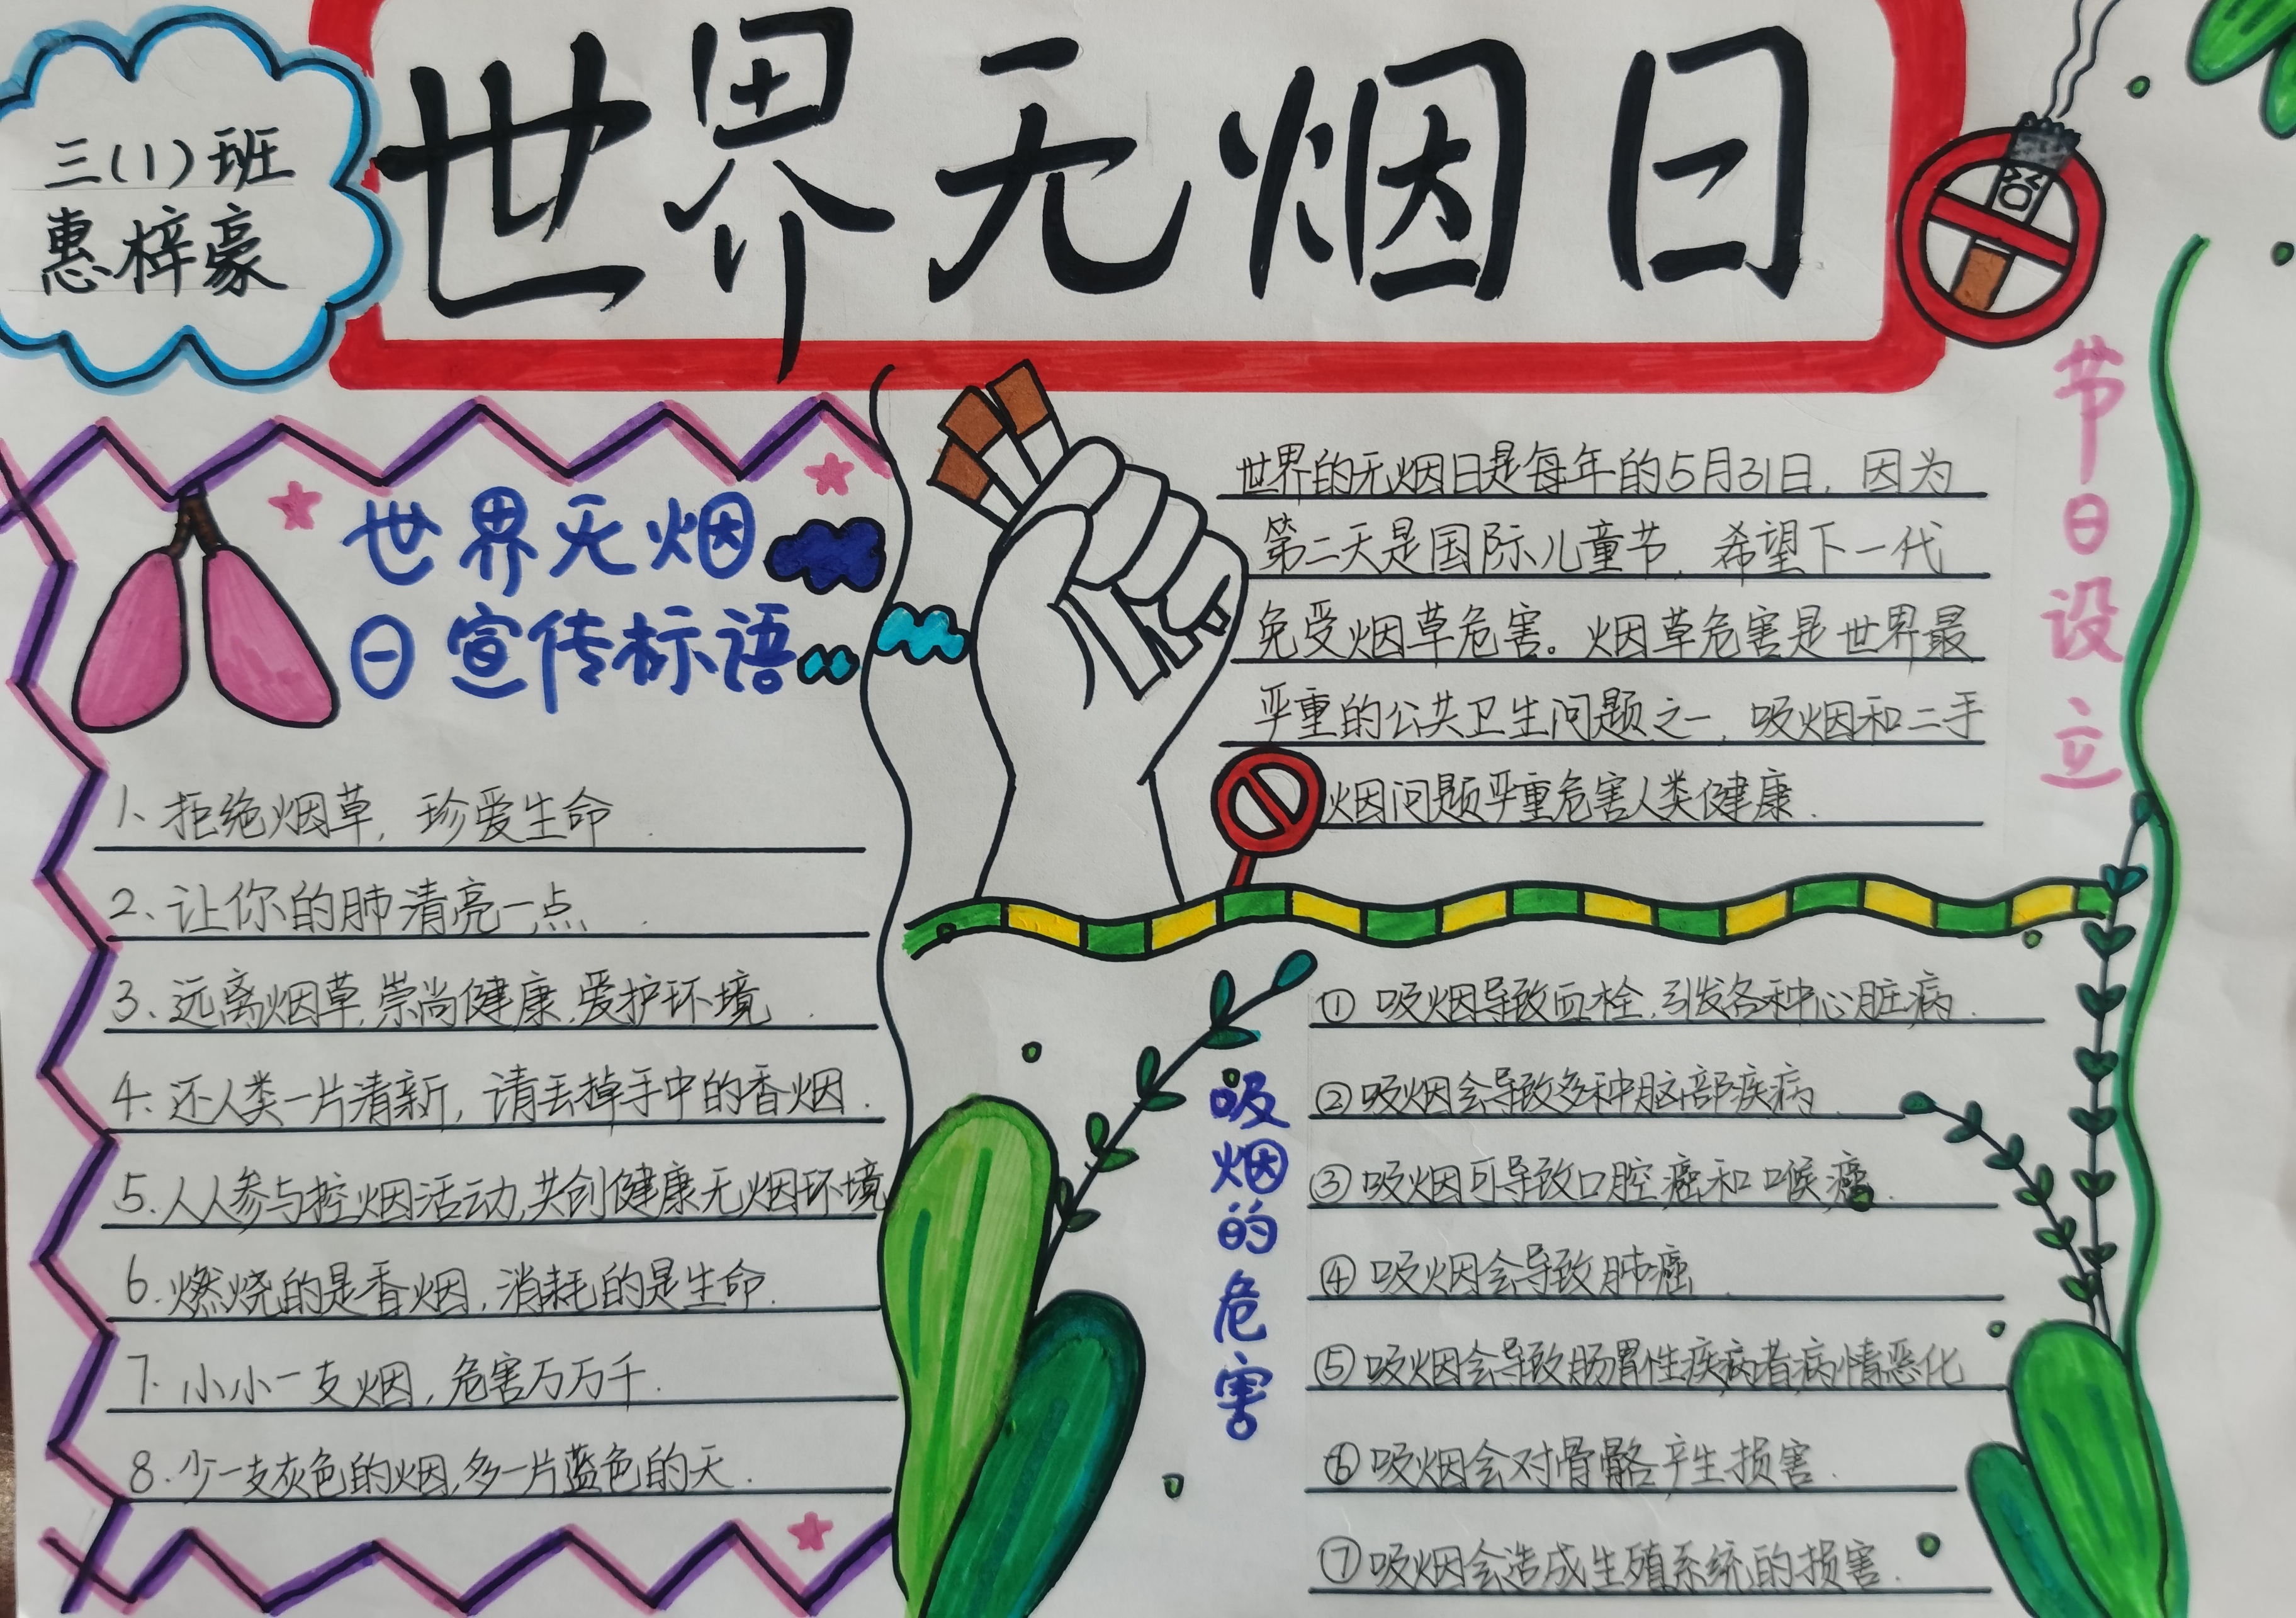 三(1)班
惠梓豪
世界无烟日
世界无烟
日宣传标语
1、拒绝烟草，珍爱生命.
2、让你的肺清亮一点.
3、远离烟草,崇尚健康,爱护环境.
4、还人类一片清新，请丢掉手中的香烟.
5.人人参与控烟活动,共创健康无烟环境
6.燃烧的是香烟,消耗的是生命.
7.小小一支烟,危害万万千.
8.少一支灰色的烟,多一片蓝色的天.
节日设立
世界的无烟日是每年的5月31日，因为
第二天是国际儿童节，希望下一代
免受烟草危害。烟草危害是世界最
严重的公共卫生问题之一，吸烟和二手
烟问题严重危害人类健康.
吸烟的危害
①吸烟导致血栓,引发各种心脏病.
②吸烟会导致多种脑部疾病.
③吸烟可导致口腔癌和喉癌.
④吸烟会导致肺癌.
⑤吸烟会导致肠胃性疾病者病情恶化
⑥吸烟会对骨骼产生损害.
⑦吸烟会造成生殖系统的损害.